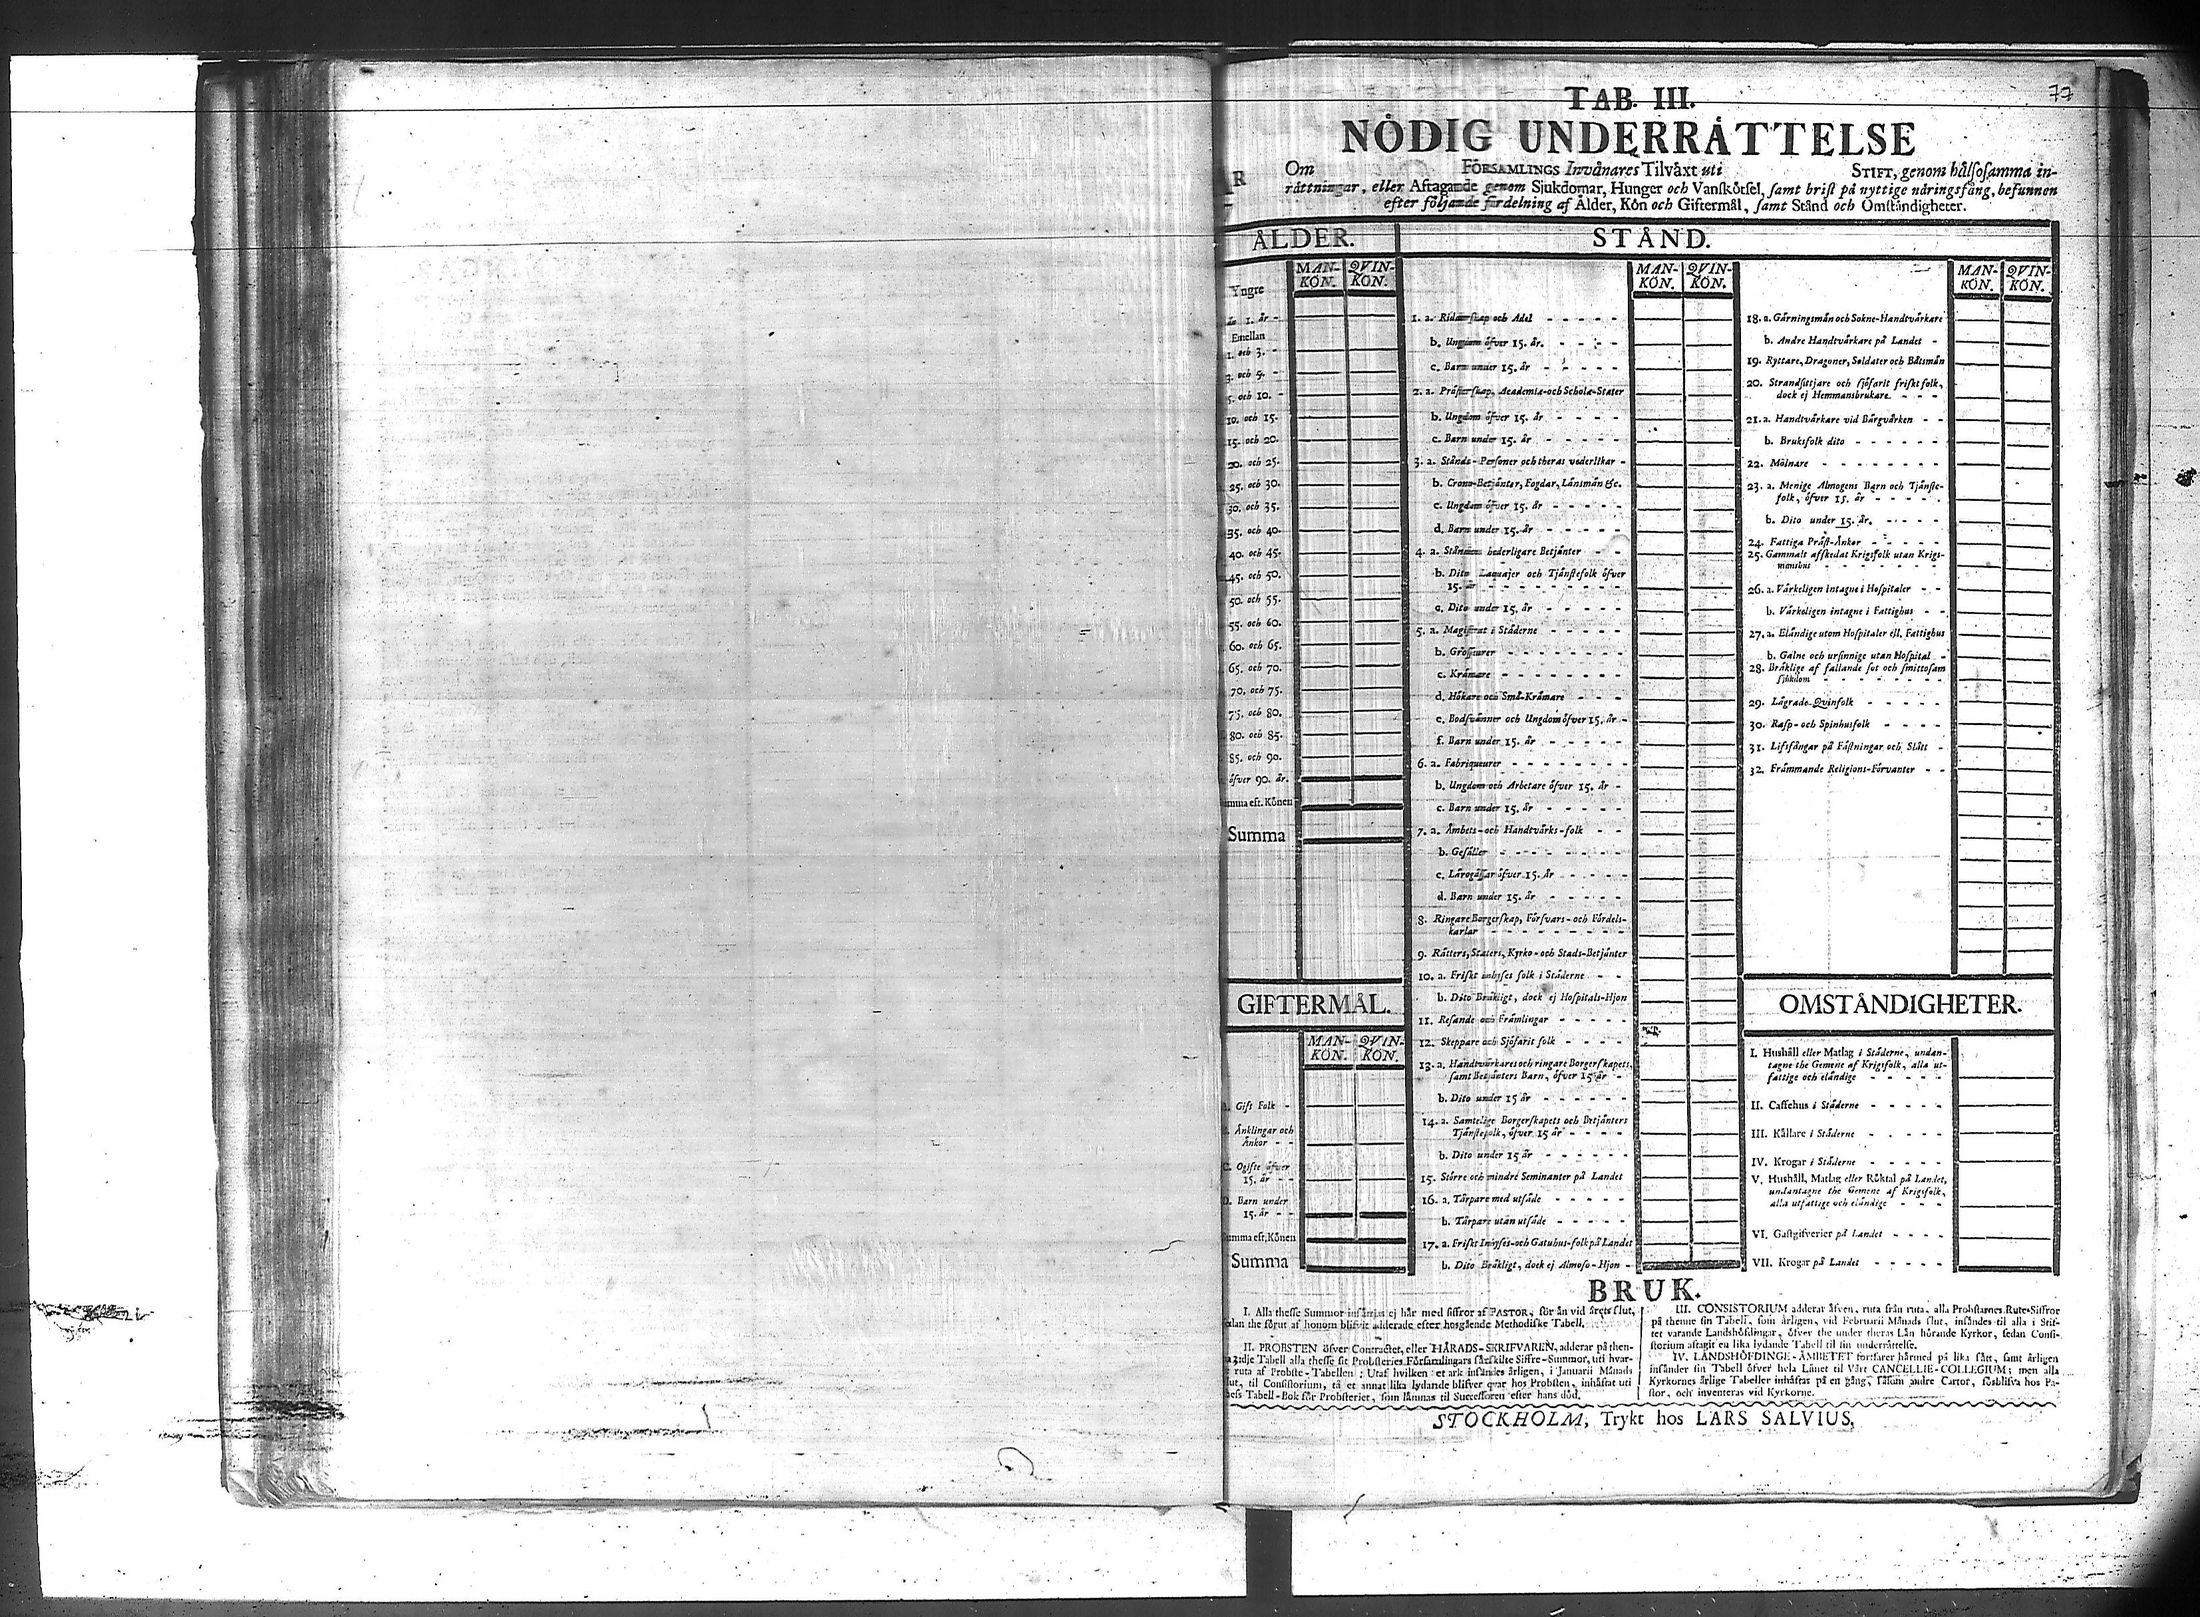 77
TAB. III.
NÖDIG UNDERRÅTTELSE
Om FÖRSAMLINGS Invånares Tilväxt uti STIFT, genom hålsosamma in-
råttningar, eller Aftagande genom Sjukdomar, Hunger och Vanskötsel, samt brist på nyttige näringsfång, befunnen
efter följande fördelning af Ålder, Kön och Giftermål, samt Stånd och Omståndigheter.
ÅLDER.
MAN-KÖN. QVIN-KÖN.
Yngre
än 1. år -
Emellan
1. och 3. -
3. och 5. -
5. och 10. -
10. och 15.
15. och 20.
20. och 25.
25. och 30.
30. och 35.
35. och 40.
40. och 45.
45. och 50.
50. och 55.
55. och 60.
60. och 65.
65. och 70.
70. och 75.
75. och 80.
80. och 85.
85. och 90.
öfver 90. år.
umma eft. Könen
Summa
GIFTERMÅL.
MAN-KÖN. QVIN-KÖN.
Gift Folk -
Änklingar och
Änkor - -
C. Ogifte öfver
15. år - -
D. Barn under
15. år - -
umma eft. Könen
Summa
STÅND.
MAN-KÖN. QVIN-KÖN.
1. a. Ridderskap och Adel - - - - -
b. Ungdom öfver 15. år. - - - -
c. Barn under 15. år - - - - -
2. a. Prästerskap, Academiæ-och Scholæ-Stater
b. Ungdom öfver 15. år - - - -
c. Barn under 15. år - - - - -
3. a. Stånds-Personer och theras vederlikar -
b. Crono-Betjänter, Fogdar, Länsmän &c.
c. Ungdom öfver 15. år - - - - -
d. Barn under 15. år - - - - -
4. a. Ståndens hederligare Betjänter - -
b. Dito Laquajer och Tjänstefolk öfver
15. år - - - - - - - -
c. Dito under 15. år - - - - -
5. a. Magistrat i Städerne - - - - -
b. Grosseurer - - - - - - -
c. Krämare - - - - - - - -
d. Hökare och Små-Krämare - - -
e. Bodsvänner och Ungdom öfver 15. år -
f. Barn under 15. år - - - - -
6. a. Fabriqueurer - - - - - - -
b. Ungdom och Arbetare öfver 15. år -
c. Barn under 15. år - - - - -
7. a. Åmbets-och Handtvärks-folk - -
b. Gesäller - - - - - - -
c. Lärogåssar öfver 15. år - - - -
d. Barn under 15. år - - - - -
8. Ringare Borgerskap, Försvars-och Fördels-
karlar - - - - - - - -
9. Råtters, Staters, Kyrko-och Stads-Betjänter
10. a. Friskt inhyses folk i Städerne - -
b. Dito Bräkligt, dock ej Hospitals-Hjon
11. Resande och Främlingar - - - - -
12. Skeppare och Sjöfarit folk - - - -
13. a. Handtvärkares och ringare Borgerskapets,
samt Betjänters Barn, öfver 15 år -
b. Dito under 15 år - - - - -
14. a. Samtelige Borgerskapets och Betjänters
Tjänstefolk, öfver 15 år - - - -
b. Dito under 15 år - - - - -
15. Större och mindre Seminanter på Landet
16. a. Tårpare med utsäde - - - - -
b. Tårpare utan utsäde - - - - -
17. a. Friskt Inhyses-och Gatuhus-folk på Landet
b. Dito Bräkligt, dock ej Almoso-Hjon -
MAN-KÖN. QVIN-KÖN.
18. a. Gärningsmän och Sokne-Handtvärkare
b. Andre Handtvärkare på Landet -
19. Ryttare, Dragoner, Soldater och Båtsmän
20. Strandsittjare och sjöfarit friskt folk,
dock ej Hemmansbrukare. - - -
21. a. Handtvärkare vid Bärgvärken - -
b. Bruksfolk dito - - - - - -
22. Mölnare - - - - - - - -
23. a. Menige Almogens Barn och Tjänste-
folk, öfver 15. år - - - - -
b. Dito under 15. år. - - - -
24. Fattiga Präst-Änkor - - - - -
25. Gammalt afskedat Krigsfolk utan Krigs-
manshus - - - - - - - -
26. a. Värkeligen intagne i Hospitaler - -
b. Värkeligen intagne i Fattighus - -
27. a. Eländige utom Hospitaler ell. Fattighus
b. Galne och ursinnige utan Hospital -
28. Bräklige af fallande sot och smittosam
sjukdom - - - - - - - -
29. Lägrade Qvinfolk - - - - -
30. Rasp-och Spinhusfolk - - - -
31. Lifsfångar på Fästningar och Slått -
32. Främmande Religions-Förvanter - -
OMSTÅNDIGHETER.
I. Hushåll eller Matlag i Städerne, undan-
tagne the Gemene af Krigsfolk, alla ut-
fattige och eländige - - - - -
II. Caffehus i Städerne - - - - -
III. Källare i Städerne - - - - -
IV. Krogar i Städerne - - - - -
V. Hushåll, Matlag eller Röktal på Landet,
undantagne the Gemene af Krigsfolk,
alla utfattige och eländige - - - -
VI. Gästgifverier på Landet - - - -
VII. Krogar på Landet - - - - -
BRUK.
I. Alla thesse Summor införas ej här med siffror af PASTOR, för än vid årets slut,
dan the förut af honom blifvit adderade efter hosgående Methodiske Tabell.
II. PROBSTEN öfver Contractet, eller HÄRADS-SKRIFVAREN, adderar på then-
3:dje Tabell alla thesse sit Probsteries Församlingars särskilte Siffre-Summor, uti hvar-
ruta af Probste-Tabellen; Utaf hvilken et ark insändes årligen, i Januarii Månads
slut, til Consistorium, tå et annat lika lydande blifver qvar hos Probsten, inhäftat uti
hess Tabell-Bok för Probsteriet, som lämnas til Successoren efter hans död.
III. CONSISTORIUM adderar äfven, ruta från ruta, alla Probstarnes Rute-Siffror
på thenne sin Tabell, som årligen, vid Februarii Månads slut, insändes til alla i Stif-
tet varande Landshöfdingar, öfver the under theras Län hörande Kyrkor, sedan Consi-
storium aftagit en lika lydande Tabell til sin underrättelse.
IV. LANDSHÖFDINGE-ÄMBETET fortfarer härmed på lika sätt, samt årligen
insänder sin Tabell öfver hela Länet til Vårt CANCELLIE-COLLEGIUM; men alla
Kyrkornes årlige Tabeller inhäftas på en gång, såsom andre Cartor, förblifva hos Pa-
stor, och inventeras vid Kyrkorne.
STOCKHOLM, Trykt hos LARS SALVIUS.